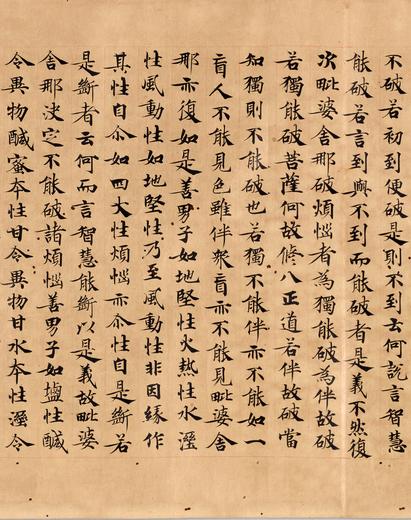 不破若初到便破是則不到云何說言智慧
能破若言到與不到而能破者是義不然復
次毗婆舍那破煩惱者為獨能破為伴故破
若獨能破菩薩何故脩八正道若伴故破當
知獨則不能破也若獨不能伴亦不能如一
盲人不能見色雖伴衆盲亦不能見毗婆舍
那亦復如是善男子如地堅性火熱性水溼
性風動性如地堅性乃至風動性非因緣作
其性自尒如四大性煩惱亦尒性自是斷若
是斷者云何而言智慧能斷以是義故毗婆
舍那決定不能破諸煩惱善男子如塩性醎
令異物醎蜜夲性甘令異物甘水夲性溼令